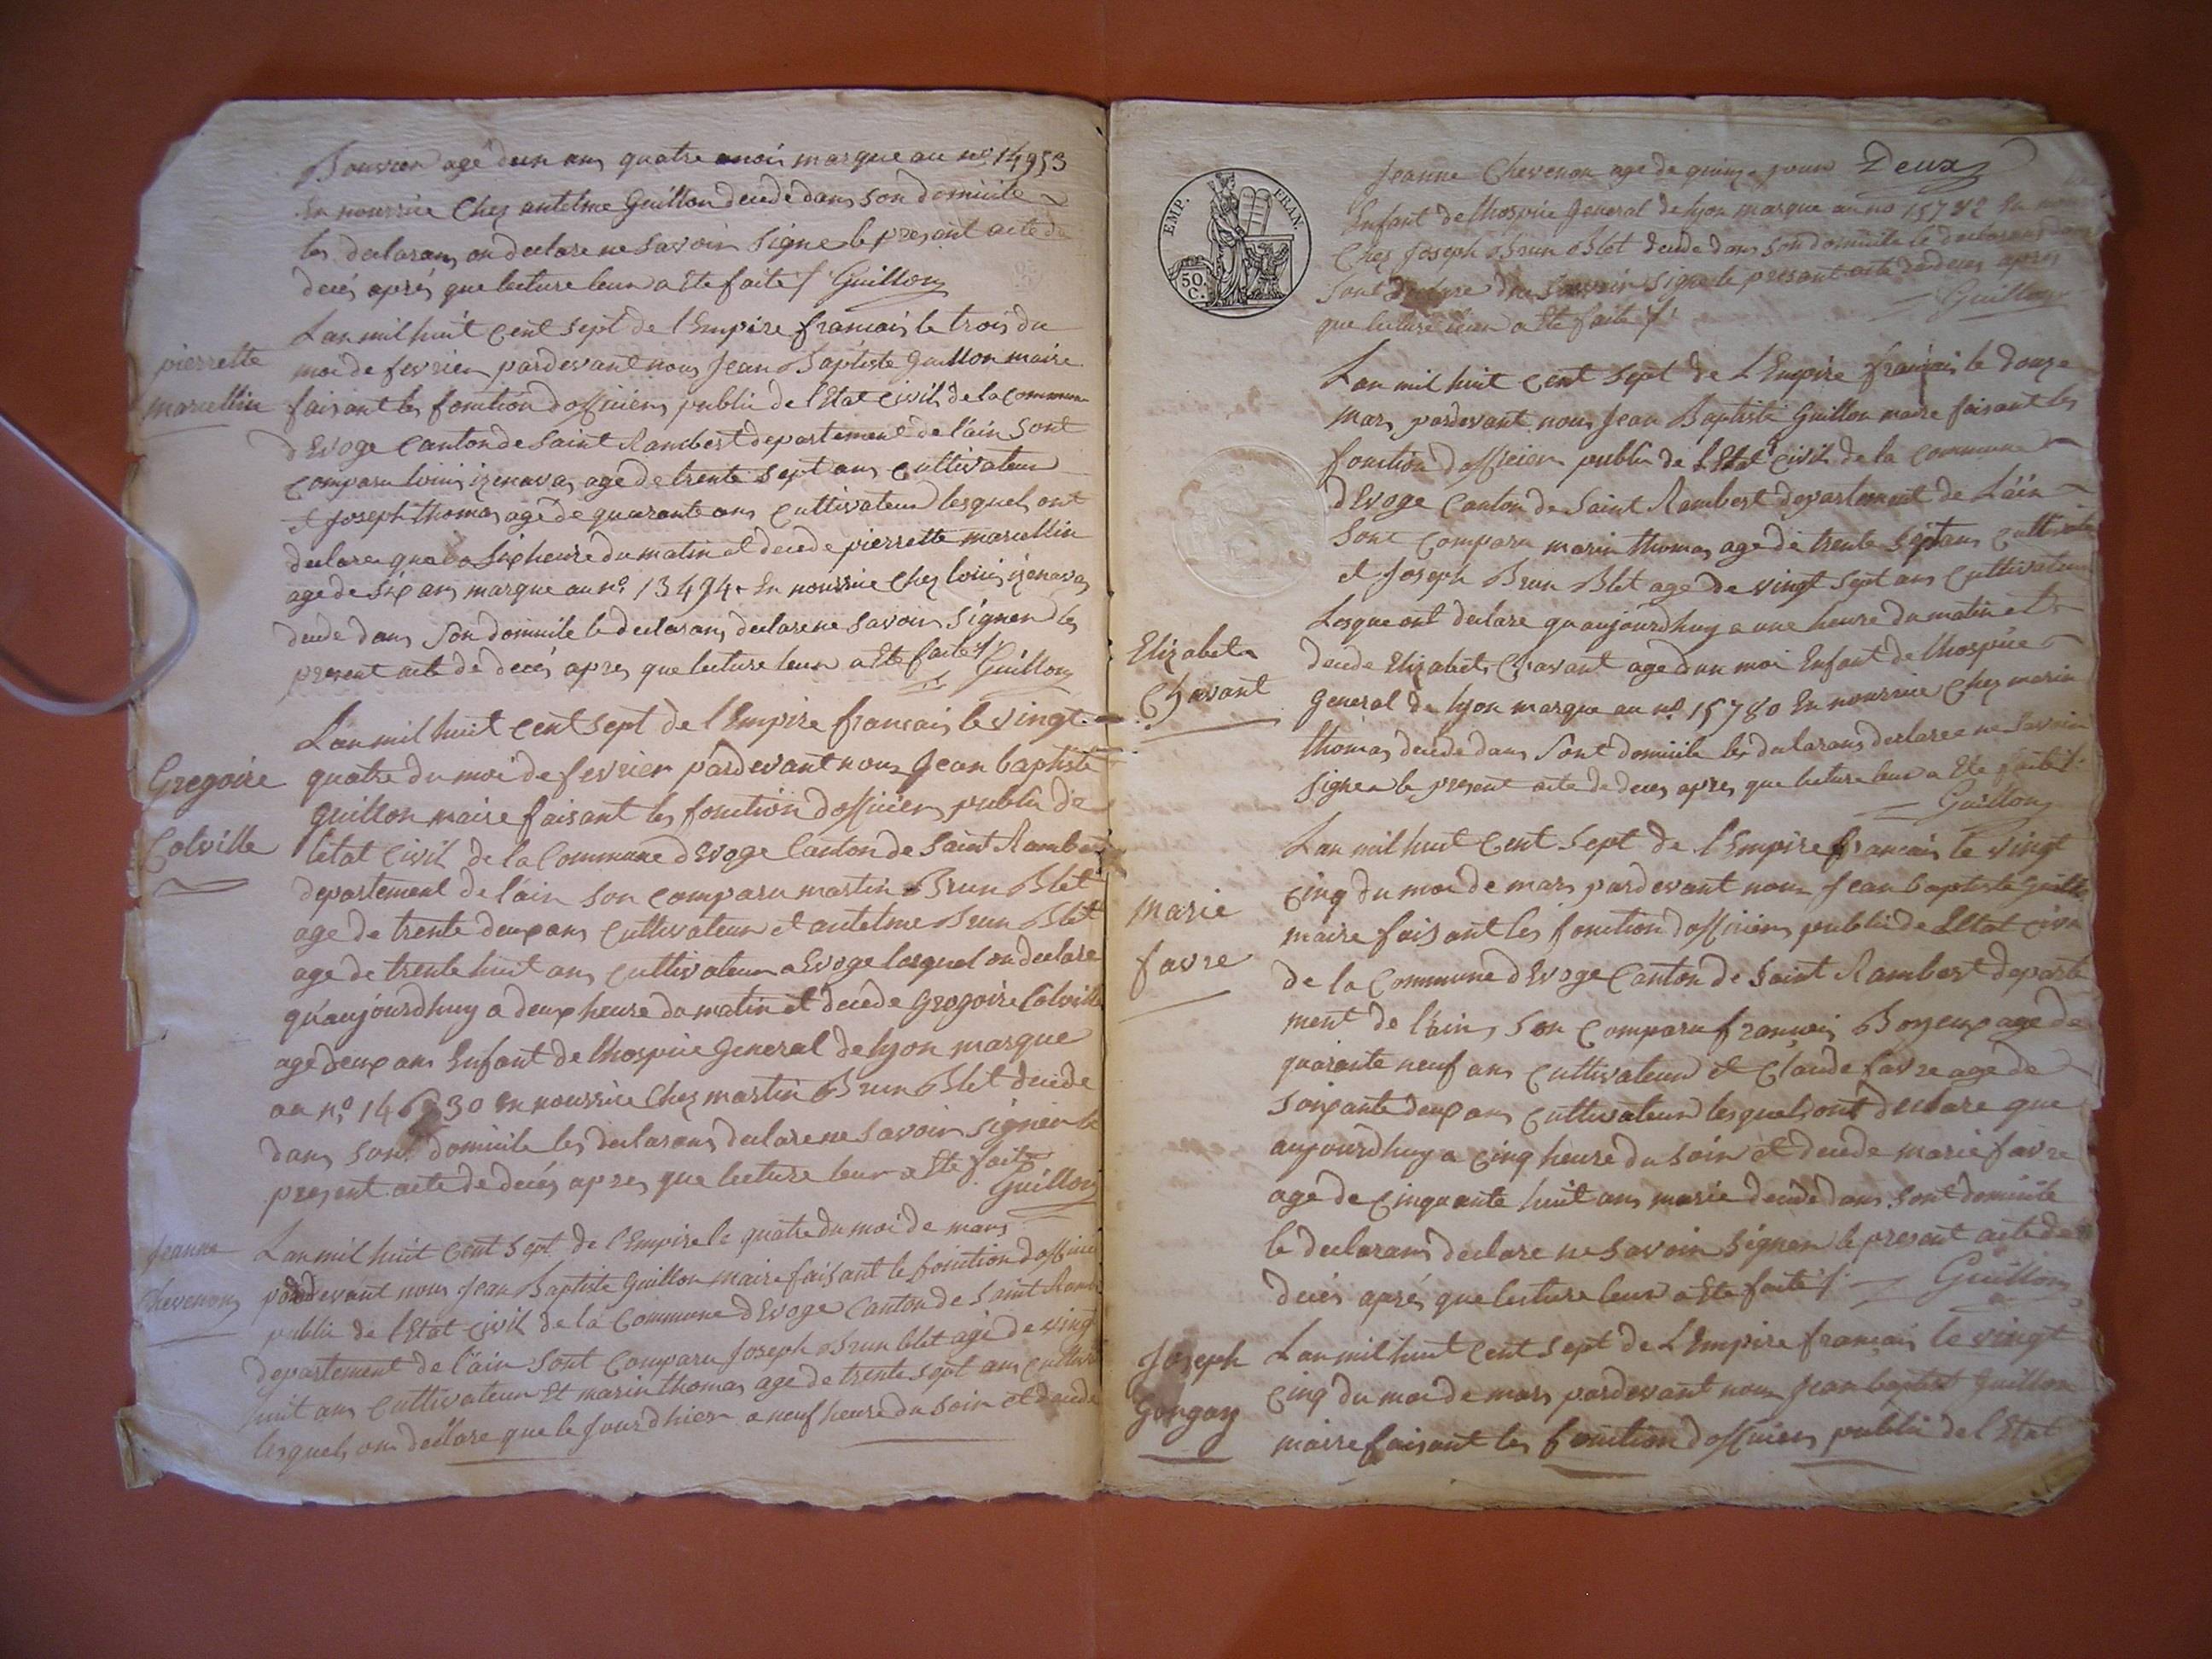 Bouvier agé dun ans quatre mois marque au no 14953
En nourrice Chez antelme Guillon decede dans son domicile
les declarans on declare ne Savoir Signe le present acte de
decés aprés que lecture leur a Ete faite /. Guillon
pierrette
marcellin
Lan mil huit Cent Sept de l'Empire francais le trois du
moi de fevrier pardevant nous Jean Baptiste Guillon maire
faisant les fonction dofficiers public de l'Etat Civil de la Commune
dEvoge Canton de Saint Rambert departement de l'ain Sont
Comparu louis izenavas age de trente Sept ans Cultivateur
et Joseph thomas agé de quarante ans Cultivateur lesquels ont
declare que a Six heure du matin et decede pierrette marcellin
age de Six ans marque au no. 13494 En nourrice Chez louis izenavas
decede dans Son domicile le declarans declare ne Savoir Signer les
present acte de decés apres que lecture leur a Ete faite /.
Guillon
Gregoire
Colville
Lan mil huit Cent Sept de l'Empire francais le vingt
quatre du moi de fevrier pardevant nous Jean baptiste
Guillon maire faisant les fonction dofficiers public de
letat Civil de la Commune dEvoge Canton de Saint Rambert
departement de l'ain Son Comparu martin Brun Blet
age de trente deux ans Cultivateur et antelme Brun Blet
age de trente huit ans Cultivateur a Evoge lesquel on declare
quaujourdhuy a deux heure du matin et decede Gregoire Colville
age deux ans Enfant de lhospice General de lyon marque
au no. 14 30 En nourrice Chez martin Brun Blet decede
dans Sont domicile les declarans declare ne Savoir Signer le
present acte de decés apres que lecture leur a Ete faite
Guillon
Jeanne
Chevenon
Lan mil huit Cent Sept de l'Empire le quatre du moi de mars
pardevant nous Jean Baptiste Guillon maire faisant le fonction doffici
public de l'Etat Civil de la Commune dEvoge Canton de Saint Ramb
departement de l'ain Sont Comparu Joseph Brun blet agé de vingt
huit ans Cultivateur Et marin thomas age de trente Sept ans Cultiv
lesquels ons declare que le Jour dhier a neuf heure du Soir et decede
EMP. FRAN.
50 C.
Jeanne Chevenon age de quinze jours Deux
Enfant de lhospice General de lyon marque au no 15782 En nou
Chez Joseph Brun Blet decede dans Son domicile le declarans dans
Sont declare ne Savoir Signe le present acte de deces apres
que lecture leur a Ete faite /.
Guillon
Elizabet
Chavant
Lan mil huit Cent Sept de L'Empire français le douze
mars pardevant nous Jean Baptiste Guillon maire faisant les
fonction dofficiers public de L'Etat Civil de la Commune
dEvoge Canton de Saint Rambert departement de L'ain
Sont Comparu marin thomas age de trente Sept ans Cultivate
et Joseph Brun Blet age de vingt Sept ans Cultivateur
Lesque ont declare quaujourdhuy a une heure du matin et
decede Elizabet Chavant age dun moi Enfant de lhospice
General de lyon marque au no. 15780 En nourrice Chez marin
thomas decede dans Sont domicile les declarans declare ne Savoir
Signer le present acte de deces apres que lecture leur a Ete faite /.
Guillon
marie
favre
Lan mil huit Cent Sept de l'Empire francais le vingt
Cinq du moi de mars pardevant nous Jean baptiste Guillo
maire faisant les fonction dofficiers public de LEtat Civi
de la Commune dEvoge Canton de Saint Rambert departe
ment de l'ain Son Comparu francois age de
quarante neuf ans Cultivateur et Claude favre age de
Soixante deux ans Cultivateur lesquels ont declare que
aujourdhuy a Cinq heure du Soir et decede marie favre
age de Cinquante huit ans marie decede dans Sont domicile
le declarans declare ne Savoir Signer le present acte de
decés aprés que lecture leur a Ete faite /.
Guillon
Joseph
Gongon
Lan mil huit Cent Sept de L'Empire francais le vingt
Cinq du moi de mars pardevant nous Jean baptist Guillon
maire faisant les fonction dofficiers public de l'Etat